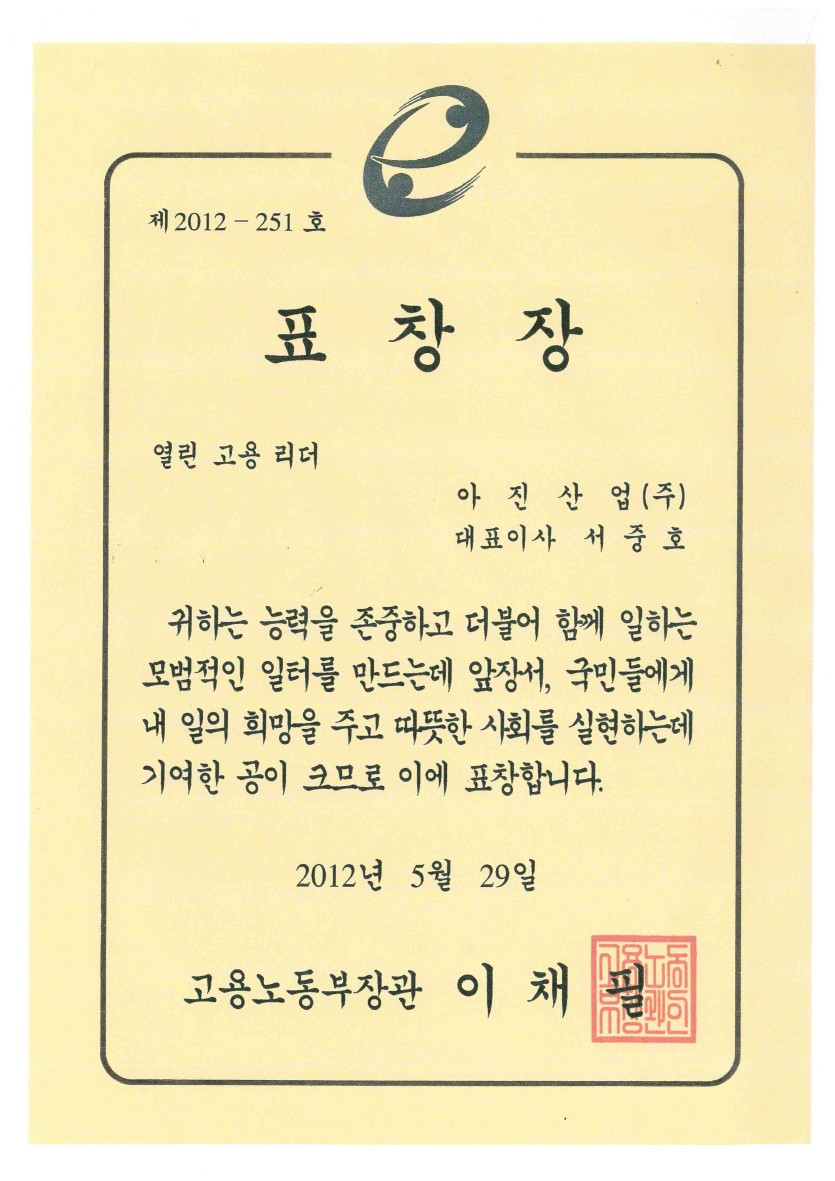 제 2012 - 251 호
표 창 장
열린 고용 리더
아 진 산 업 (주)
대표이사 서 중 호
귀하는 능력을 존중하고 더불어 함께 일하는
모범적인 일터를 만드는데 앞장서, 국민들에게
내 일의 희망을 주고 따뜻한 사회를 실현하는데
기여한 공이 크므로 이에 표창합니다.
2012년 5월 29일
고용노동부장관 이 채 필